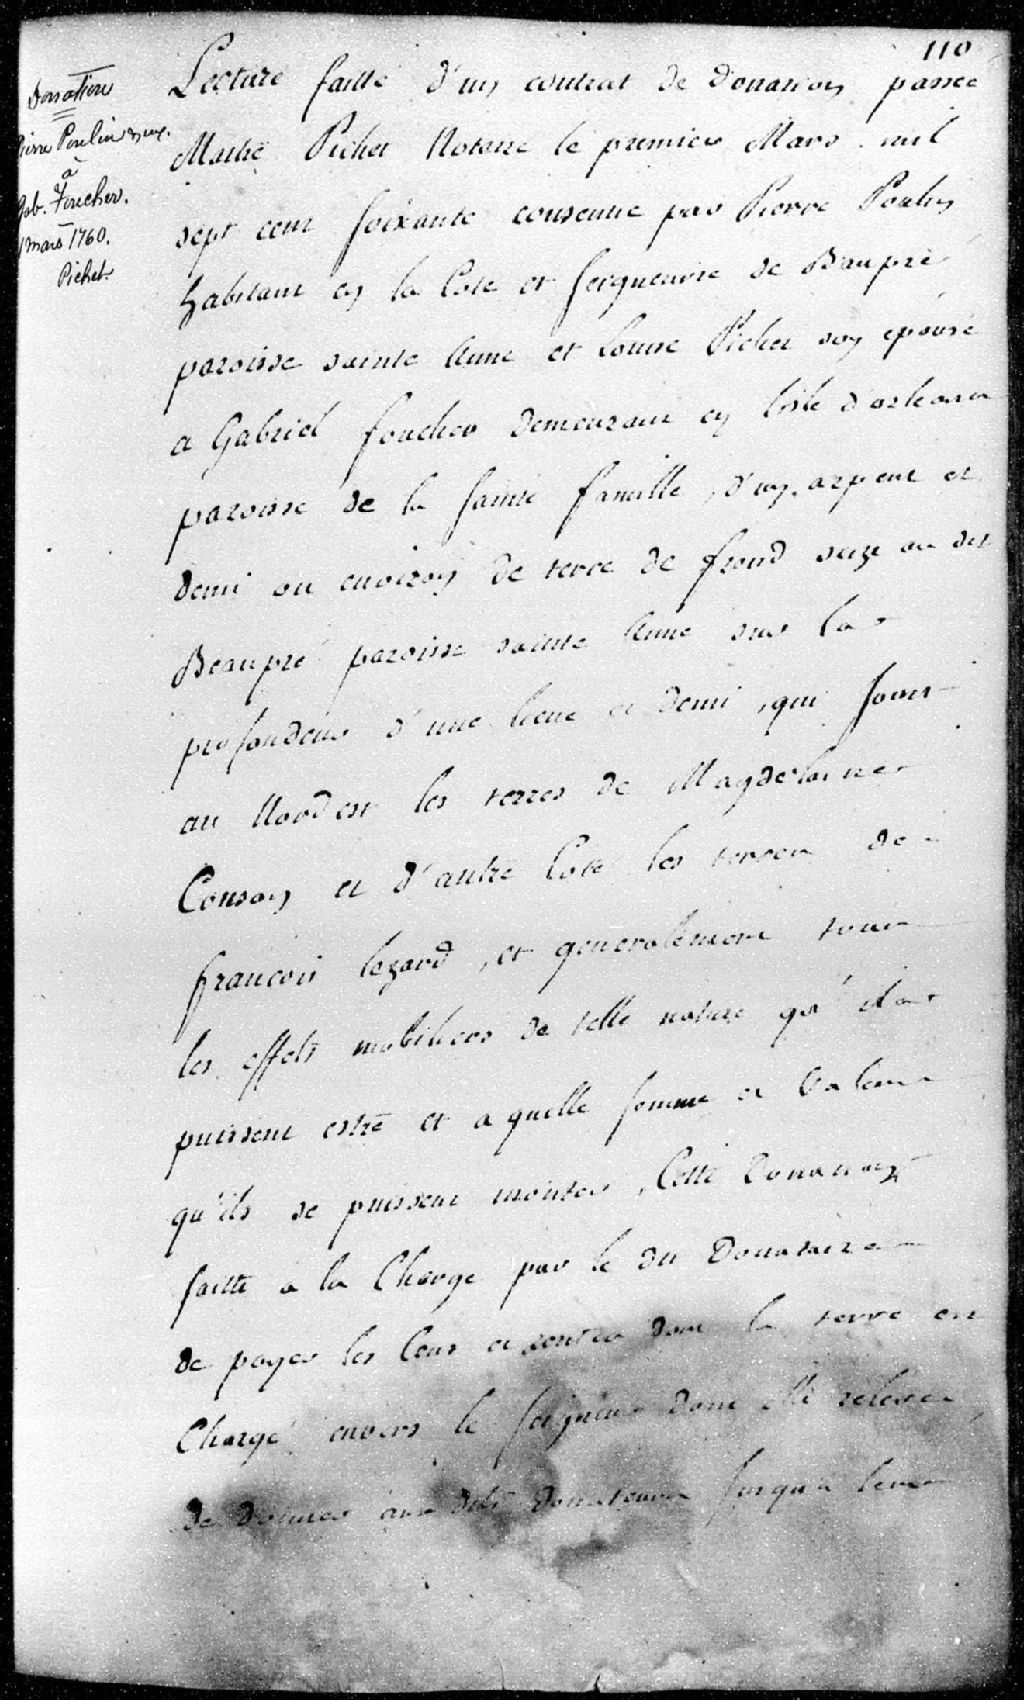 110
Donation
Pierre Poulin &
à
Gab. Foucher.
1 mars 1760.
Pichet.
Lecture faitte d'un contrat de Donation passée
Maitre Pichet Notaire le premier Mars mil
sept cent soixante consentie par Pierre Poulin
habitant en la Cote et Seigneurie de Baupré
paroisse sainte Anne et Louise Pichet son epouse
a Gabriel foucher demeurant en l'isle d'orleans
paroisse de la sainte famille, d'un arpent et
demi ou environ de terre de frond size au dit
Beaupré paroisse sainte Anne sur la
profondeur d'une lieue et demi, qui joint
au Nord est les terres de Magdelaine
Couson et d'autre Coté les terres de
francois lezard, et generalement tous
les effets mobiliers de telle nature qu'ils
puissent estre et a quelle somme et Valeur
qu'ils se puissent monter, Cette Donation
faitte a la Charge par le dit Donataire
de payer les Cens et rentes dont la terre est
Chargé envers le seigneur dont elle releve
de donner aux dits donateurs jusqu'a leur